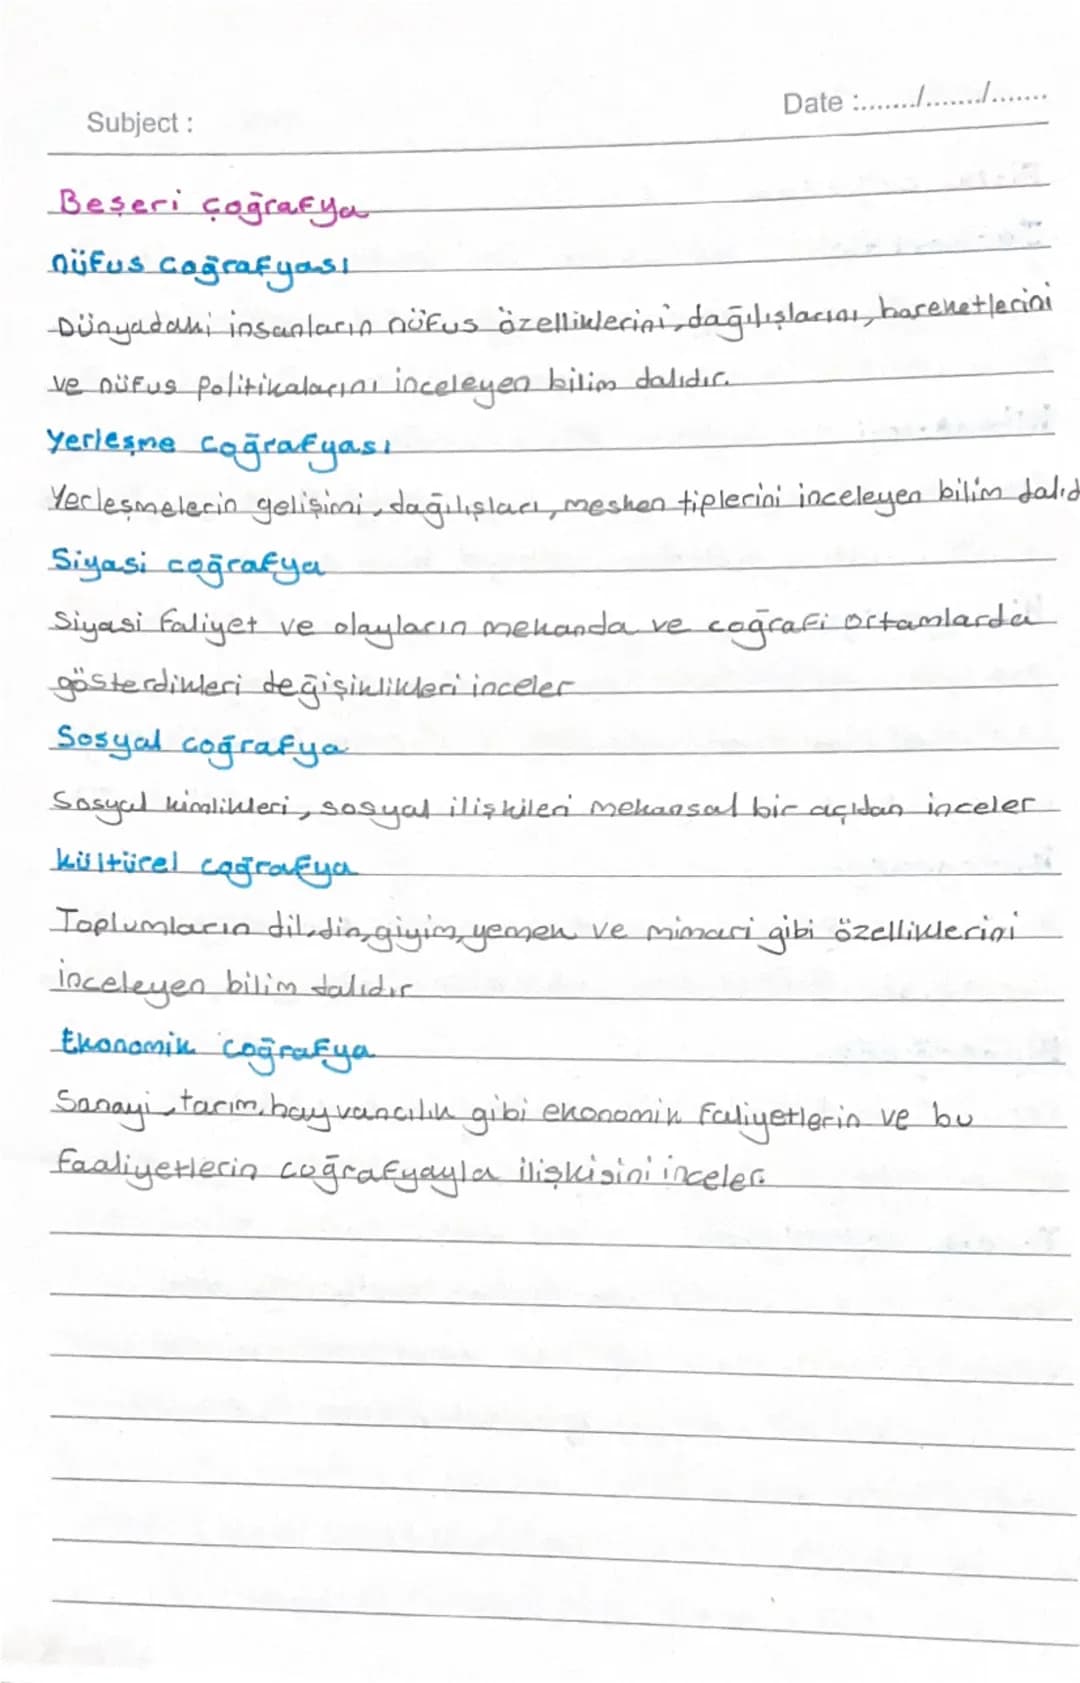 Date :......./......./.......
Subject :
Beşeri çoğrafya
nüfus coğrafyası
Dünyadaki insanların nüfus özelliklerini, dağılışlarını, hareketlerini
ve nüfus politikalarını inceleyen bilim dalıdır.
Yerleşme coğrafyası
Yerleşmelerin gelişimi, dağılışları, mesken tiplerini inceleyen bilim dalıd
Siyasi coğrafya
Siyasi faliyet ve olayların mekanda ve coğrafi ortamlarda
gösterdikleri değişiklikleri inceler
Sosyal coğrafya
Sosyal kimlikleri, sosyal ilişkileri mekansal bir açıdan inceler
kültürel coğrafya
Toplumların dil, din, giyim, yemek ve mimari gibi özelliklerini
inceleyen bilim dalıdır
Ekonomik coğrafya
Sanayi, tarım, hayvancılık gibi ekonomik faliyetlerin ve bu
faaliyetlerin coğrafyayla ilişkisini inceler.